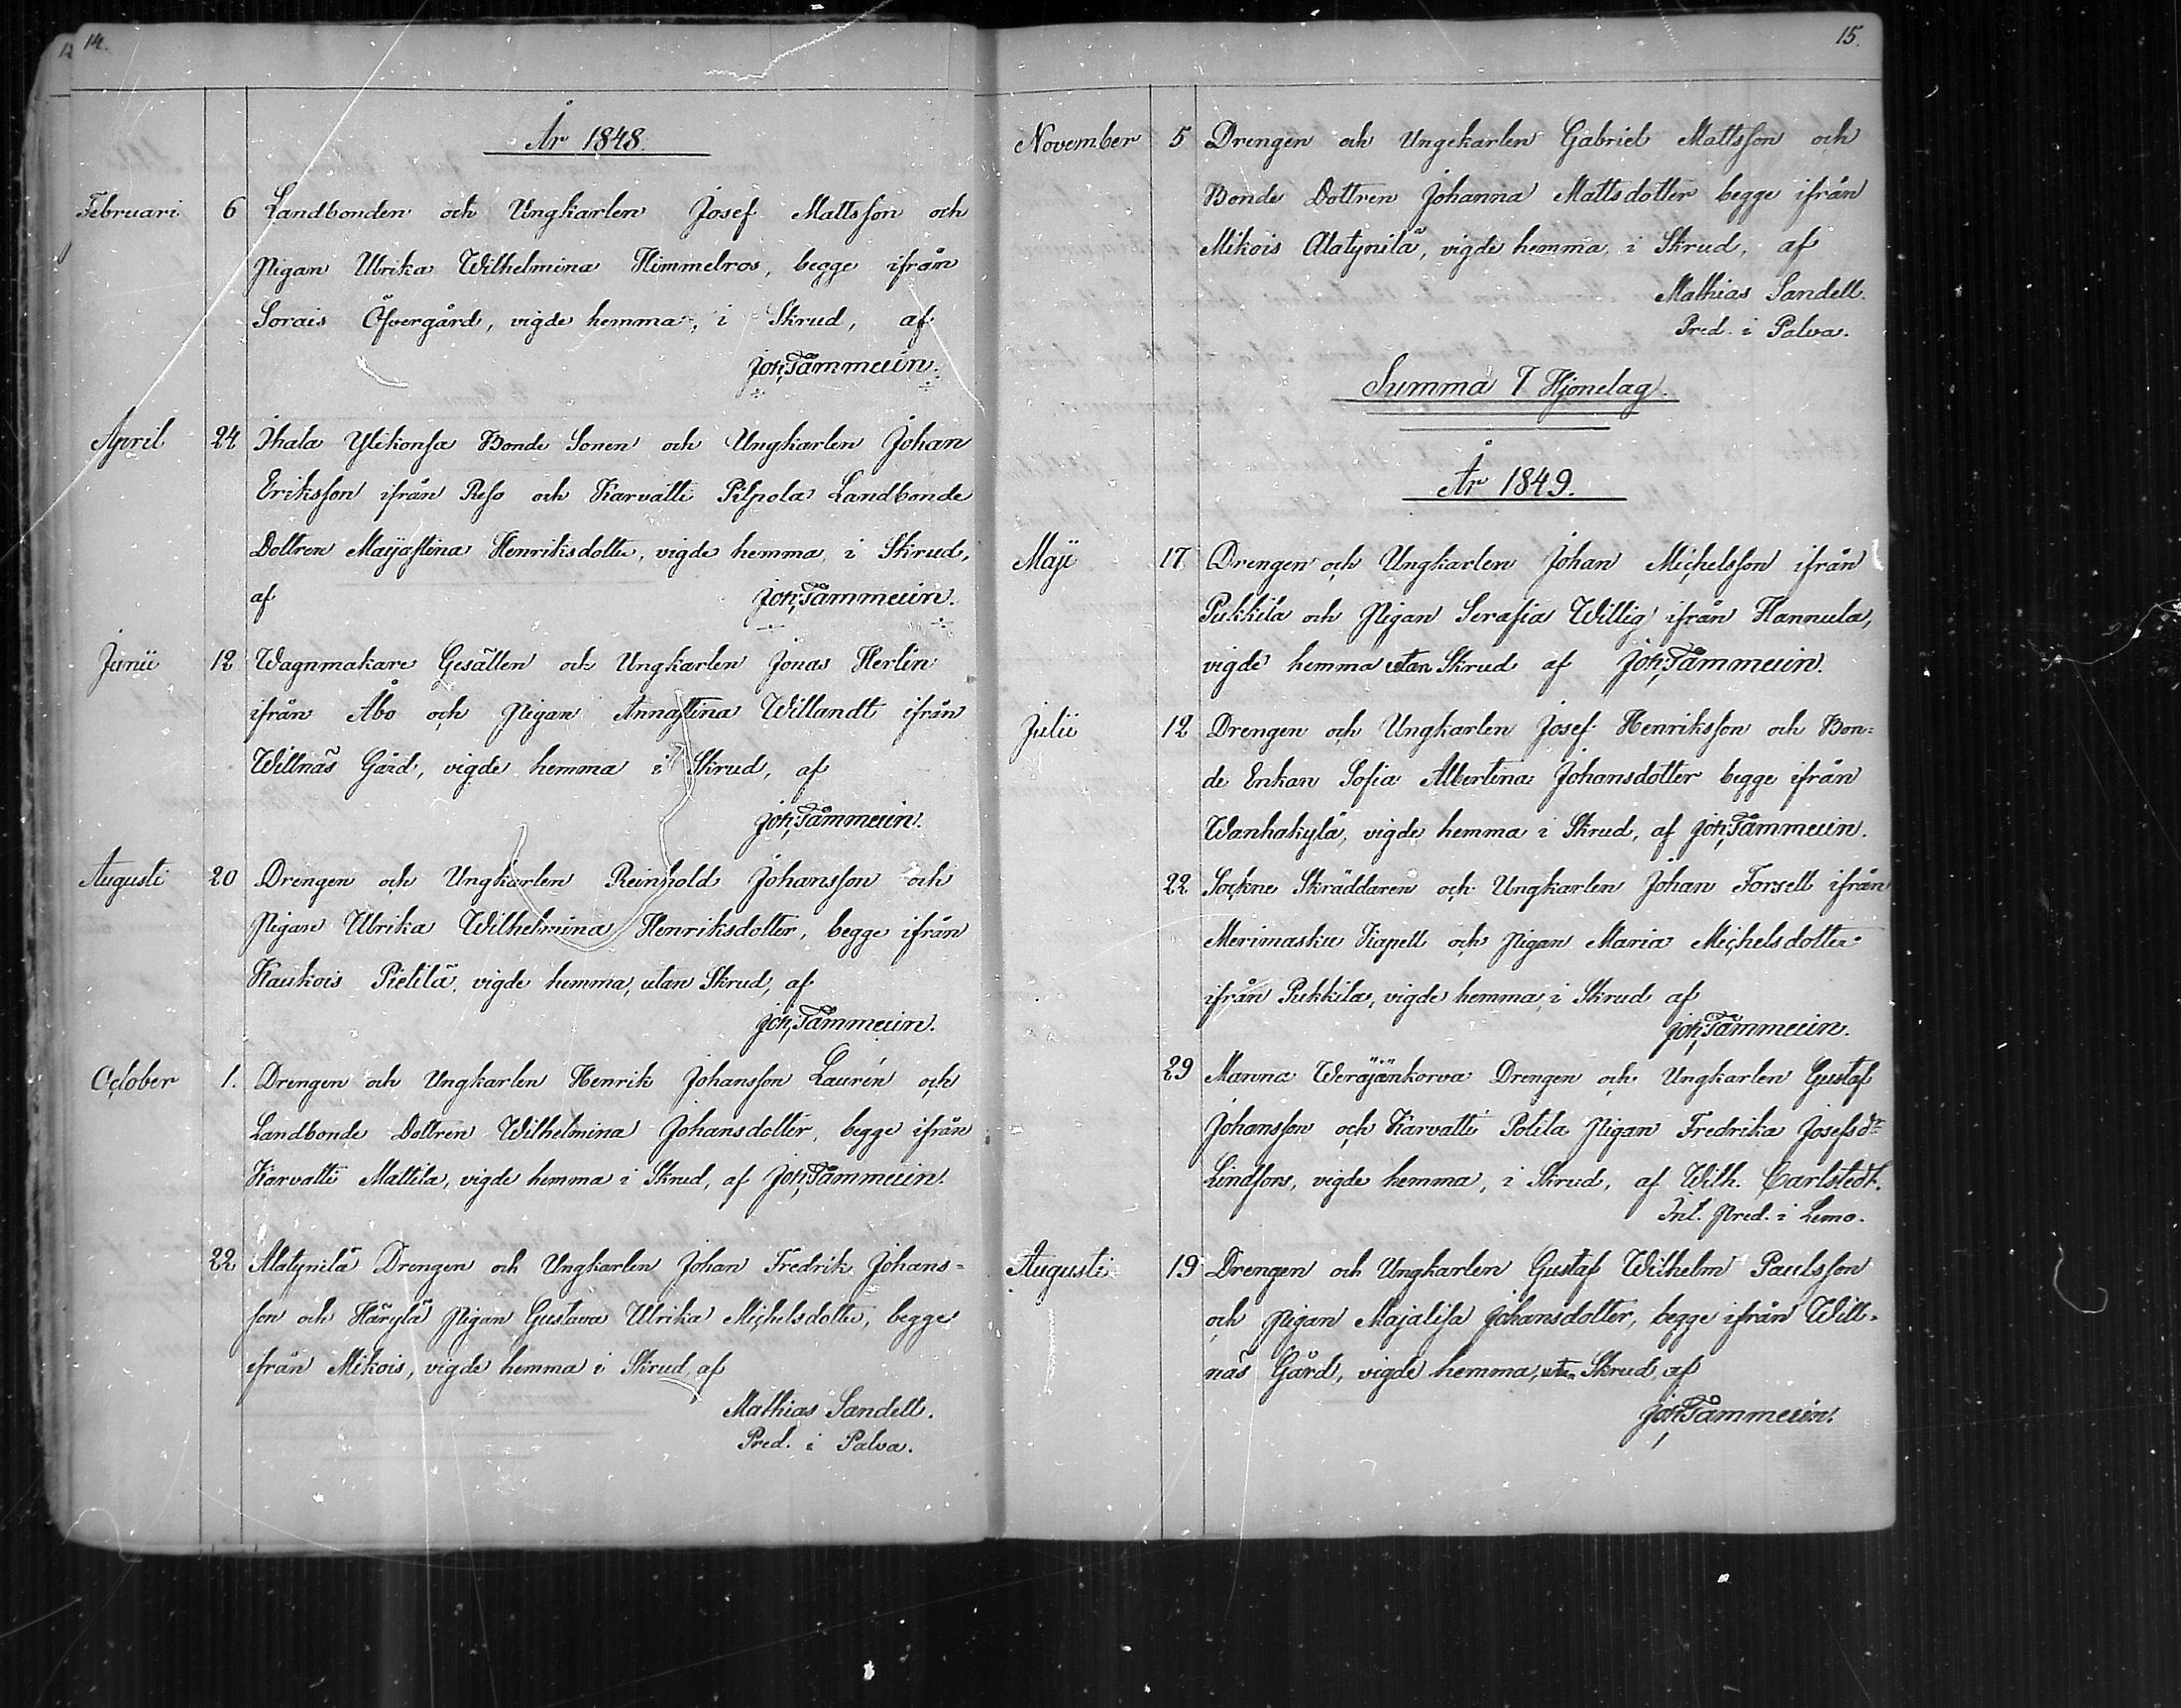 14.
År 1848.
Februari 6 Landbonden och Ungkarlen Josef Mattsson och
Pigan Ulrika Wilhelmina Himmelros, begge ifrån
Sorais Öfvergård, vigde hemma, i Skrud, af
Joh. Tammelin.
April 24 Ihala Ylikonsa Bonde Sonen och Ungkarlen Johan
Eriksson ifrån Reso och Karvatti Pispola Landbonde
Dottren Maijastina Henriksdotter, vigde hemma, i Skrud,
af Joh. Tammelin.
Junii 12 Wagnmakare Gesällen och Ungkarlen Jonas Herlin
ifrån Åbo och Pigan Annastina Willandt ifrån
Willnäs Gård, vigde hemma i Skrud, af
Joh. Tammelin.
Augusti 20 Drengen och Ungkarlen Reinhold Johansson och
Pigan Ulrika Wilhelmina Henriksdotter, begge ifrån
Kaukois Pietilä, vigde hemma, utan Skrud, af
Joh. Tammelin.
October 1. Drengen och Ungkarlen Henrik Johansson Laurén och
Landbonde Dottren Wilhelmina Johansdotter, begge ifrån
Karvatti Mattila, vigde hemma i Skrud, af Joh. Tammelin.
22 Alatynilä Drengen och Ungkarlen Johan Fredrik Johans-
son och Härylä Pigan Gustava Ulrika Michelsdotter, begge
ifrån Mikois, vigde hemma i Skrud, af
Mathias Sandell.
Pred. i Palva.
15.
November 5 Drengen och Ungekarlen Gabriel Mattsson och
Bonde Dottren Johanna Mattsdotter begge ifrån
Mikois Alatynilä, vigde hemma, i Skrud, af
Mathias Sandell.
Pred. i Palva.
Summa 7 Hjonelag.
År 1849.
Maji 17 Drengen och Ungkarlen Johan Michelsson ifrån
Pukkila och Pigan Serafia Willig ifrån Hannula,
vigde hemma utan Skrud af Joh. Tammelin.
Julii 12 Drengen och Ungkarlen Josef Henriksson och Bon-
de Enkan Sofia Albertina Johansdotter begge ifrån
Wanhakylä, vigde hemma i Skrud, af Joh. Tammelin.
22 Sockne Skräddaren och Ungkarlen Johan Forsell ifrån
Merimasku Kapell och Pigan Maria Michelsdotter
ifrån Pukkila, vigde hemma, i Skrud af
Joh. Tammelin.
29 Manna Weräjänkorva Drengen och Ungkarlen Gustaf
Johansson och Karvatti Potila Pigan Fredrika Josefsdr
Lindfors, vigde hemma, i Skrud, af Wilh. Carlstedt.
Inl. Pred. i Lemo.
Augusti 19 Drengen och Ungkarlen Gustaf Wilhelm Paulsson
och Pigan Majalisa Johansdotter, begge ifrån Will-
näs Gård, vigde hemma, utan Skrud, af
Joh. Tammelin.